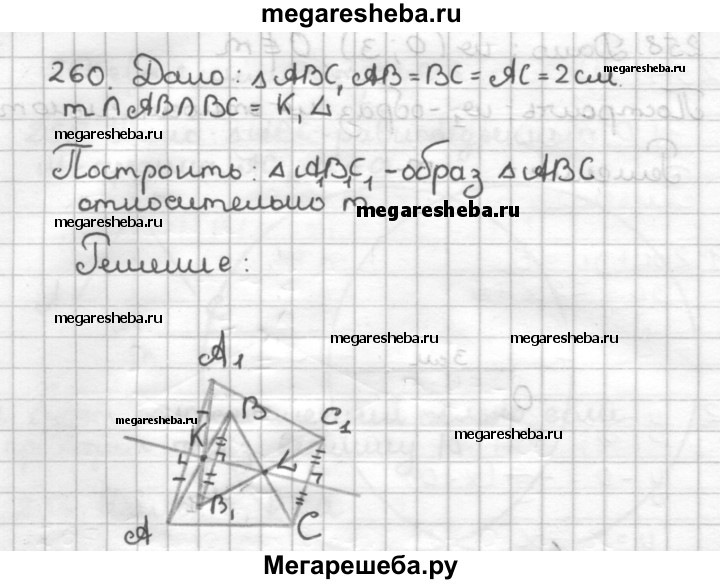 megaresheba.ru
260. Дано: △ ABC, AB = BC = AC = 2 см.
megaresheba.ru
m ∩ AB ∩ BC = K, L
megaresheba.ru
Построить: △ A₁B₁C₁ - образ △ ABC
относительно m.
megaresheba.ru
megaresheba.ru
Решение:
megaresheba.ru
megaresheba.ru
megaresheba.ru
A₁
megaresheba.ru
B
C₁
K
megaresheba.ru
L
B₁
A
C
Мегарешеба.ру